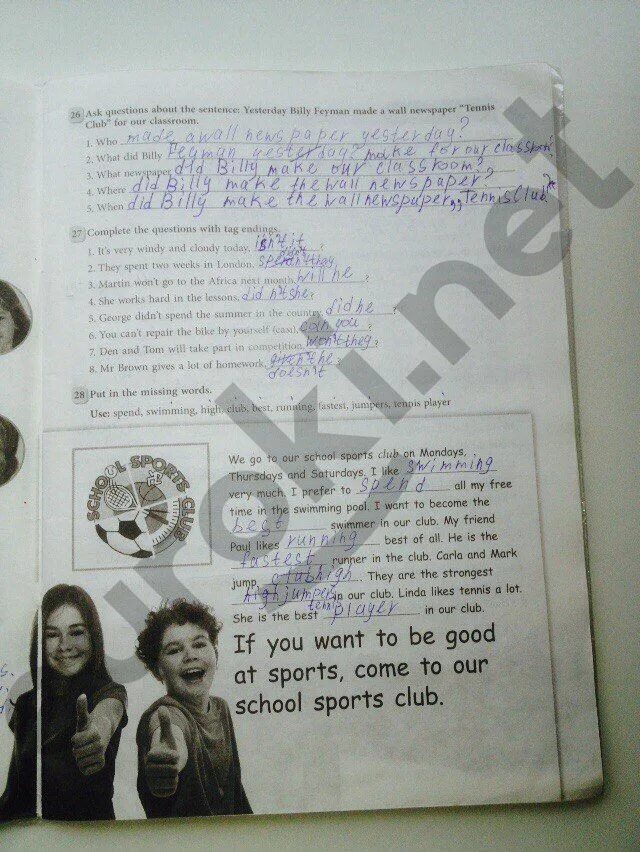 26 Ask questions about the sentence: Yesterday Billy Feyman made a wall newspaper "Tennis
Club" for our classroom.
1. Who made a wall newspaper yesterday?
2. What did Billy Feyman yesterday? make for our classroom?
3. What newspaper did Billy make our classroom?
4. Where did Billy make the wall newspaper?
5. When did Billy make the wall newspaper „Tennis Club"
27 Complete the questions with tag endings.
1. It's very windy and cloudy today, isn't it ?
2. They spent two weeks in London, didn't they
3. Martin won't go to the Africa next month, will he ?
4. She works hard in the lessons, did n't she ?
5. George didn't spend the summer in the country, did he ?
6. You can't repair the bike by yourself (сам), can you ?
7. Den and Tom will take part in competition, won't they ?
8. Mr Brown gives a lot of homework, he ?
doesn't
28 Put in the missing words.
Use: spend, swimming, high, club, best, running, fastest, jumpers, tennis player
SCHOOL SPORTS CLUB
We go to our school sports club on Mondays,
Thursdays and Saturdays. I like swimming
very much. I prefer to spend all my free
time in the swimming pool. I want to become the
best swimmer in our club. My friend
Paul likes running best of all. He is the
fastest runner in the club. Carla and Mark
jump high. They are the strongest
high jumpers in our club. Linda likes tennis a lot.
She is the best tennis player in our club.
If you want to be good
at sports, come to our
school sports club.
uroki.net